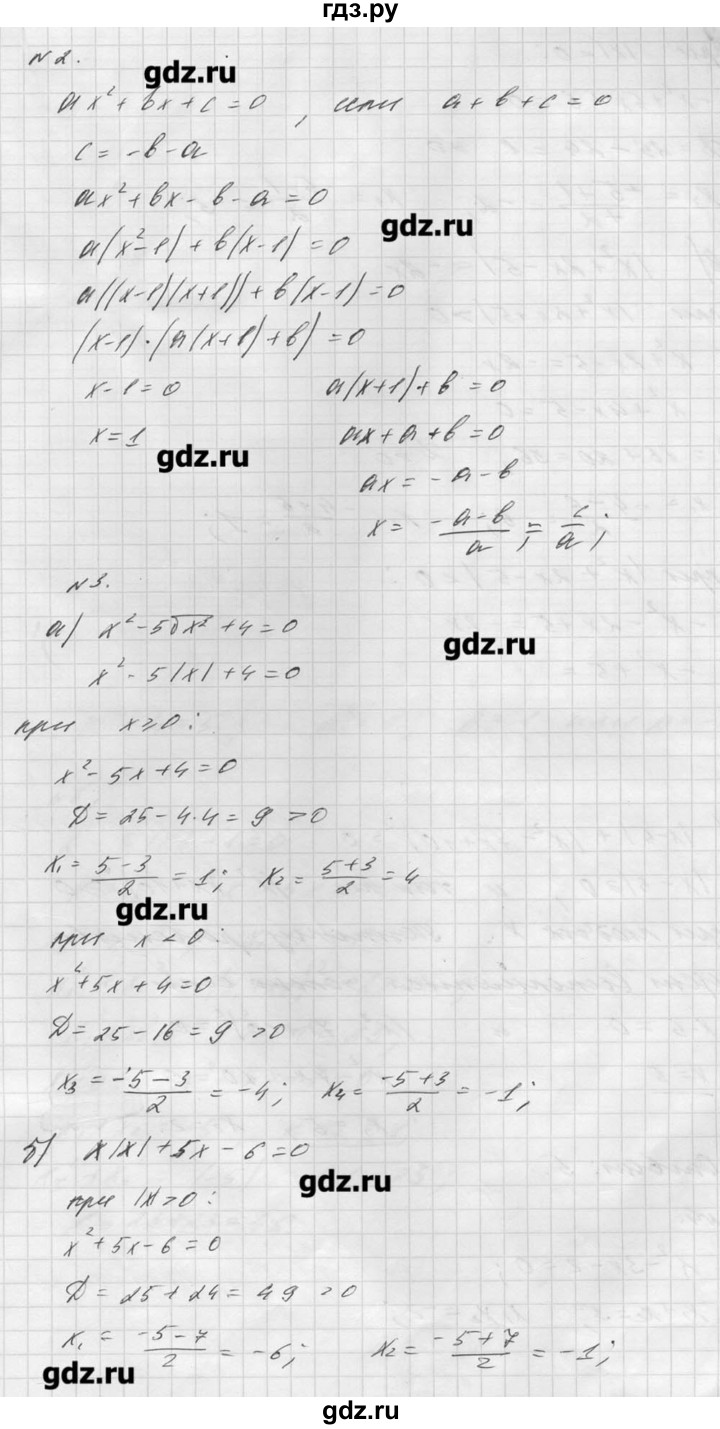 гдз.ру
N2.
gdz.ru
ax² + bx + c = 0, если a + b + c = 0
c = -b - a
ax² + bx - b - a = 0
gdz.ru
a(x² - 1) + b(x - 1) = 0
a((x-1)(x+1)) + b(x-1) = 0
(x-1)·(a(x+1)+b) = 0
x - 1 = 0 a(x+1) + b = 0
x = 1 ax + a + b = 0
gdz.ru
ax = -a - b
x = (-a-b)/a ; = c/a ;
N3.
а) x² - 5√x² + 4 = 0
gdz.ru
x² - 5|x| + 4 = 0
при x ≥ 0:
x² - 5x + 4 = 0
D = 25 - 4·4 = 9 > 0
x₁ = (5-3)/2 = 1; x₂ = (5+3)/2 = 4
gdz.ru
при x < 0:
x² + 5x + 4 = 0
D = 25 - 16 = 9 > 0
x₃ = (-5-3)/2 = -4; x₄ = (-5+3)/2 = -1;
б) x|x| + 5x - 6 = 0
gdz.ru
при |x| > 0:
x² + 5x - 6 = 0
D = 25 + 24 = 49 > 0
x₁ = (-5-7)/2 = -6; x₂ = (-5+7)/2 = -1;
gdz.ru
gdz.ru